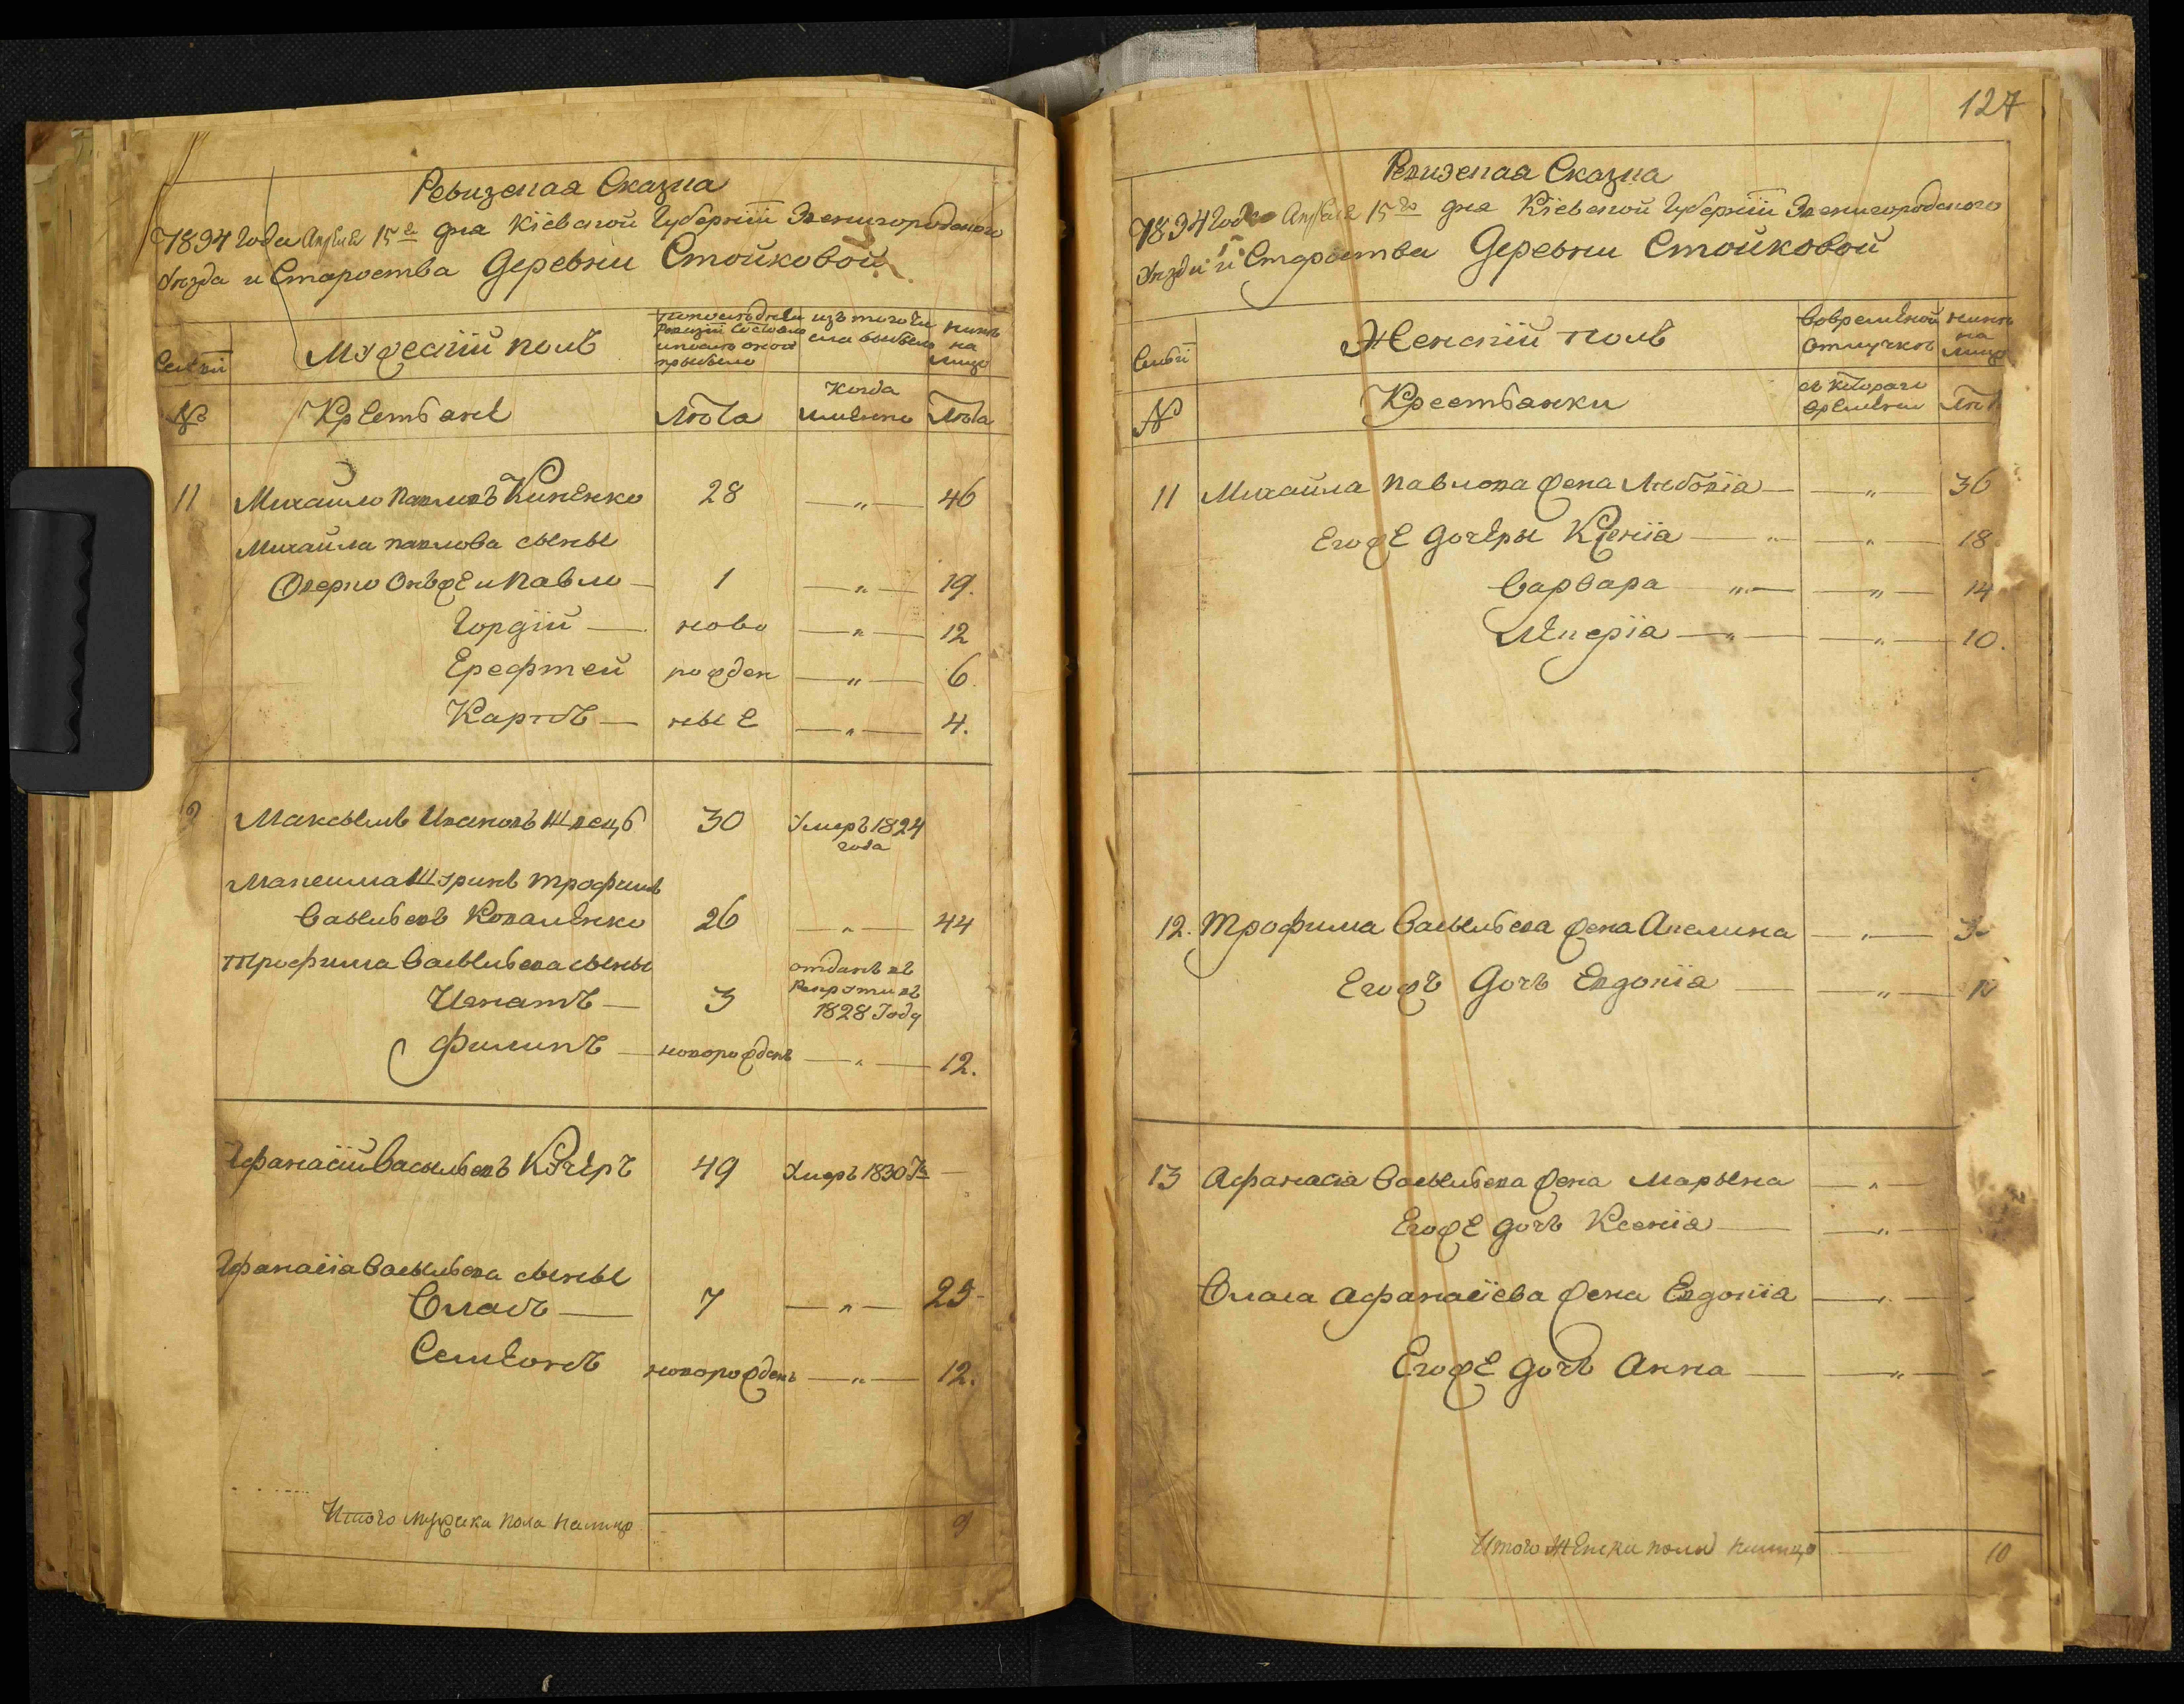 Ревизская Сказка
1834 года Апреля 15го дня Кіевской Губерніи Звенигородского
Уезда и Староства Деревни Стойковой
Семьи
Мужескій полъ
по последней Ревизіи Состояло и после оной прибыло
изъ того числа выбыло
ныне на лицо
№
Крестьяне
Лѣта
Когда именно
Лѣта
11 Михайло Павловъ Киненко 28 —„— 46
Михайла Павлова сыны
Онъже и Павло — 1 —„— 19.
Гордій — ново —„— 12
Ерефтей рожден —„— 6
Карпъ — ные —„— 4.
Максымъ Ивановъ Швець 30 Умеръ 1824 года
Максима Шуринъ Трофимъ
Васыльевъ Коваленко 26 —„— 44
Трофима Васыльева сыны
Игнатъ — 3 отданъ въ Рекруты въ 1828 Году
Филипъ — новорожденъ —„— 12.
Афанасій Васыльевъ Кучеръ 49 Умеръ 1830 Го —
Афанасія Васыльева сыны
Власъ — 7 —„— 25
Семіонъ новорожденъ —„— 12.
Итого мужска пола налицо 9
127
Ревизская Сказка
1834 Года Апреля 15го дня Кіевской Губерніи Звенигородского
Уезда и Староства Деревни Стойковой
Семьи
Женскій полъ
Во временной отлучке
ныне на лицо
№
Крестьянки
съ которого времени
Лѣт
11 Михайла Павлова жена Любовія — —„— 36
Егоже дочеры Ксенія —„— —„— 18.
Варвара —„— —„— 14
—„— —„— 10.
12. Трофима Васыльева жена Акелина —„— 3
Егожъ дочь Евдокія — —„— 10
13 Афанасія Васыльева жена Марьяна —„—
Егоже дочь Ксенія — —„—
Власа Афанасіева жена Евдокія —„—
Егоже дочь Анна — —„—
Итого женска пола налицо 10